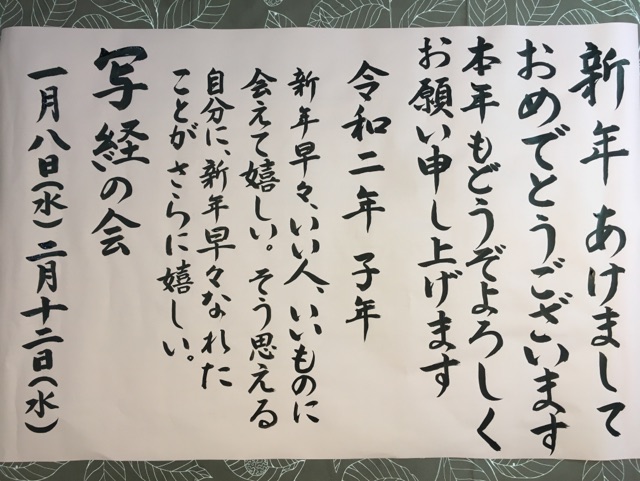 新年 あけまして
おめでとうございます
本年もどうぞよろしく
お願い申し上げます
令和二年 子年
新年早々、いい人、いいものに
会えて嬉しい。そう思える
自分に、新年早々なれた
ことがさらに嬉しい。
写経の会
一月八日(水)二月十二日(水)